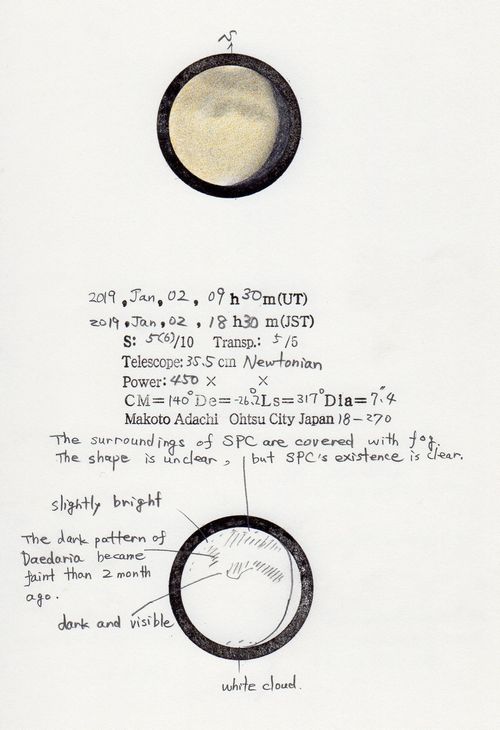 S
2019, Jan, 02, 09 h 30 m (UT)
2019, Jan, 02, 18 h 30 m (JST)
S: 5(6)/10 Transp.: 5/5
Telescope: 35.5 cm Newtonian
Power: 450 × ×
CM=140° De=-26.°2 Ls=317° Dia=7.″4
Makoto Adachi Ohtsu City Japan 18-270
The surroundings of SPC are covered with fog.
The shape is unclear, but SPC's existence is clear.
slightly bright
The dark pattern of
Daedaria became
faint than 2 month
ago.
dark and visible
white cloud.